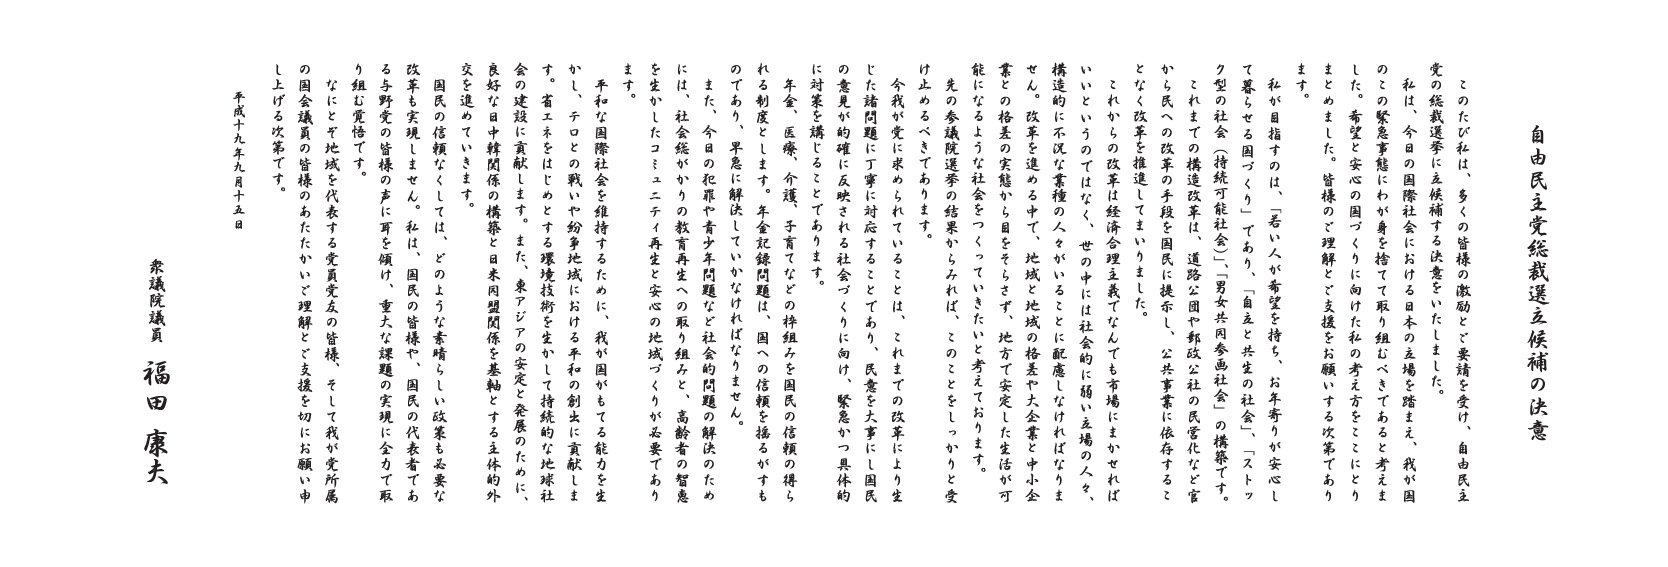 自由民主党総裁選立候補の決意
このたび私は、多くの皆様の激励とご要請を受け、自由民主
党の総裁選挙に立候補する決意をいたしました。
私は、今日の国際社会における日本の立場を踏まえ、我が国
のこの緊急事態にわが身を捨てて取り組むべきであると考えま
した。希望と安心の国づくりに向けた私の考え方をここにとり
まとめました。皆様のご理解とご支援をお願いする次第であり
ます。
私が目指すのは、「若い人が希望を持ち、お年寄りが安心し
て暮らせる国づくり」であり、「自立と共生の社会」、「ストッ
ク型の社会（持続可能社会）」、「男女共同参画社会」の構築です。
これまでの構造改革は、道路公団や郵政公社の民営化など官
から民への改革の手段を国民に提示し、公共事業に依存するこ
となく改革を推進してまいりました。
これからの改革は経済合理主義でなんでも市場にまかせれば
いいというのではなく、世の中には社会的に弱い立場の人々、
構造的に不況な業種の人々がいることに配慮しなければなりま
せん。改革を進める中で、地域と地域の格差や大企業と中小企
業との格差の実態から目をそらさず、地方で安定した生活が可
能になるような社会をつくっていきたいと考えております。
先の参議院選挙の結果からみれば、このことをしっかりと受
け止めるべきであります。
今我が党に求められていることは、これまでの改革により生
じた諸問題に丁寧に対応することであり、民意を大事にし国民
の意見が的確に反映される社会づくりに向け、緊急かつ具体的
に対策を講じることであります。
年金、医療、介護、子育てなどの枠組みを国民の信頼の得ら
れる制度とします。年金記録問題は、国への信頼を揺るがすも
のであり、早急に解決していかなければなりません。
また、今日の犯罪や青少年問題など社会的問題の解決のため
には、社会総がかりの教育再生への取り組みと、高齢者の智恵
を生かしたコミュニティ再生と安心の地域づくりが必要であり
ます。
平和な国際社会を維持するために、我が国がもてる能力を生
かし、テロとの戦いや紛争地域における平和の創出に貢献しま
す。省エネをはじめとする環境技術を生かして持続的な地球社
会の建設に貢献します。また、東アジアの安定と発展のために、
良好な日中韓関係の構築と日米同盟関係を基軸とする主体的外
交を進めていきます。
国民の信頼なくしては、どのような素晴らしい政策も必要な
改革も実現しません。私は、国民の皆様や、国民の代表者であ
る与野党の皆様の声に耳を傾け、重大な課題の実現に全力で取
り組む覚悟です。
なにとぞ地域を代表する党員党友の皆様、そして我が党所属
の国会議員の皆様のあたたかいご理解とご支援を切にお願い申
し上げる次第です。
平成十九年九月十五日
衆議院議員 福田康夫